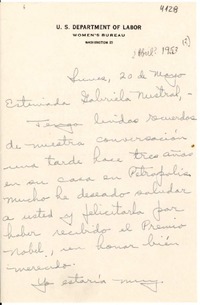 4128
U. S. DEPARTMENT OF LABOR
WOMEN'S BUREAU
WASHINGTON 25
Lunes, 20 de Mayo
Estimada Gabriela Mistral,-
Tengo lindos recuerdos
de nuestra conversación
una tarde hace tres años
en su casa en Petropolis.
Mucho he deseado saludar
a usted y felicitarla por
haber recibido el Premio
Nobel, un honor bién
merecido.
Yo estaría muy